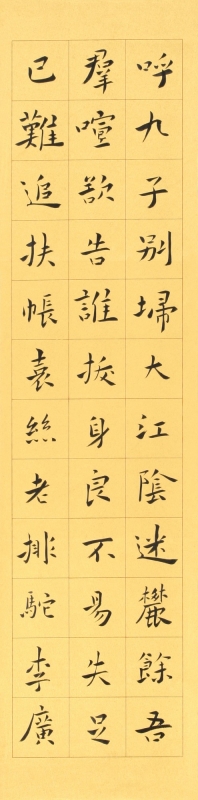 呼九子别埽大江陰迷麓餘吾
羣喧欲告誰拔身良不易失足
已難追扶帳袁絲老排駝李廣